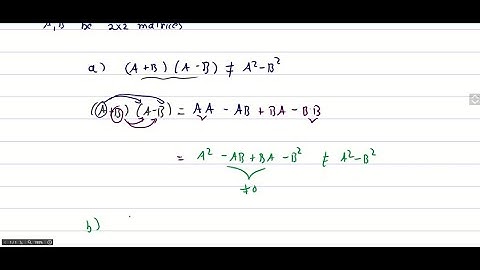 A, B be 2x2 matrices
a) (A+B) (A-B) ≠ A²-B²
(A+B) (A-B) = AA - AB + BA - BB
= A² - AB + BA - B² ≠ A²-B²
≠0
b)